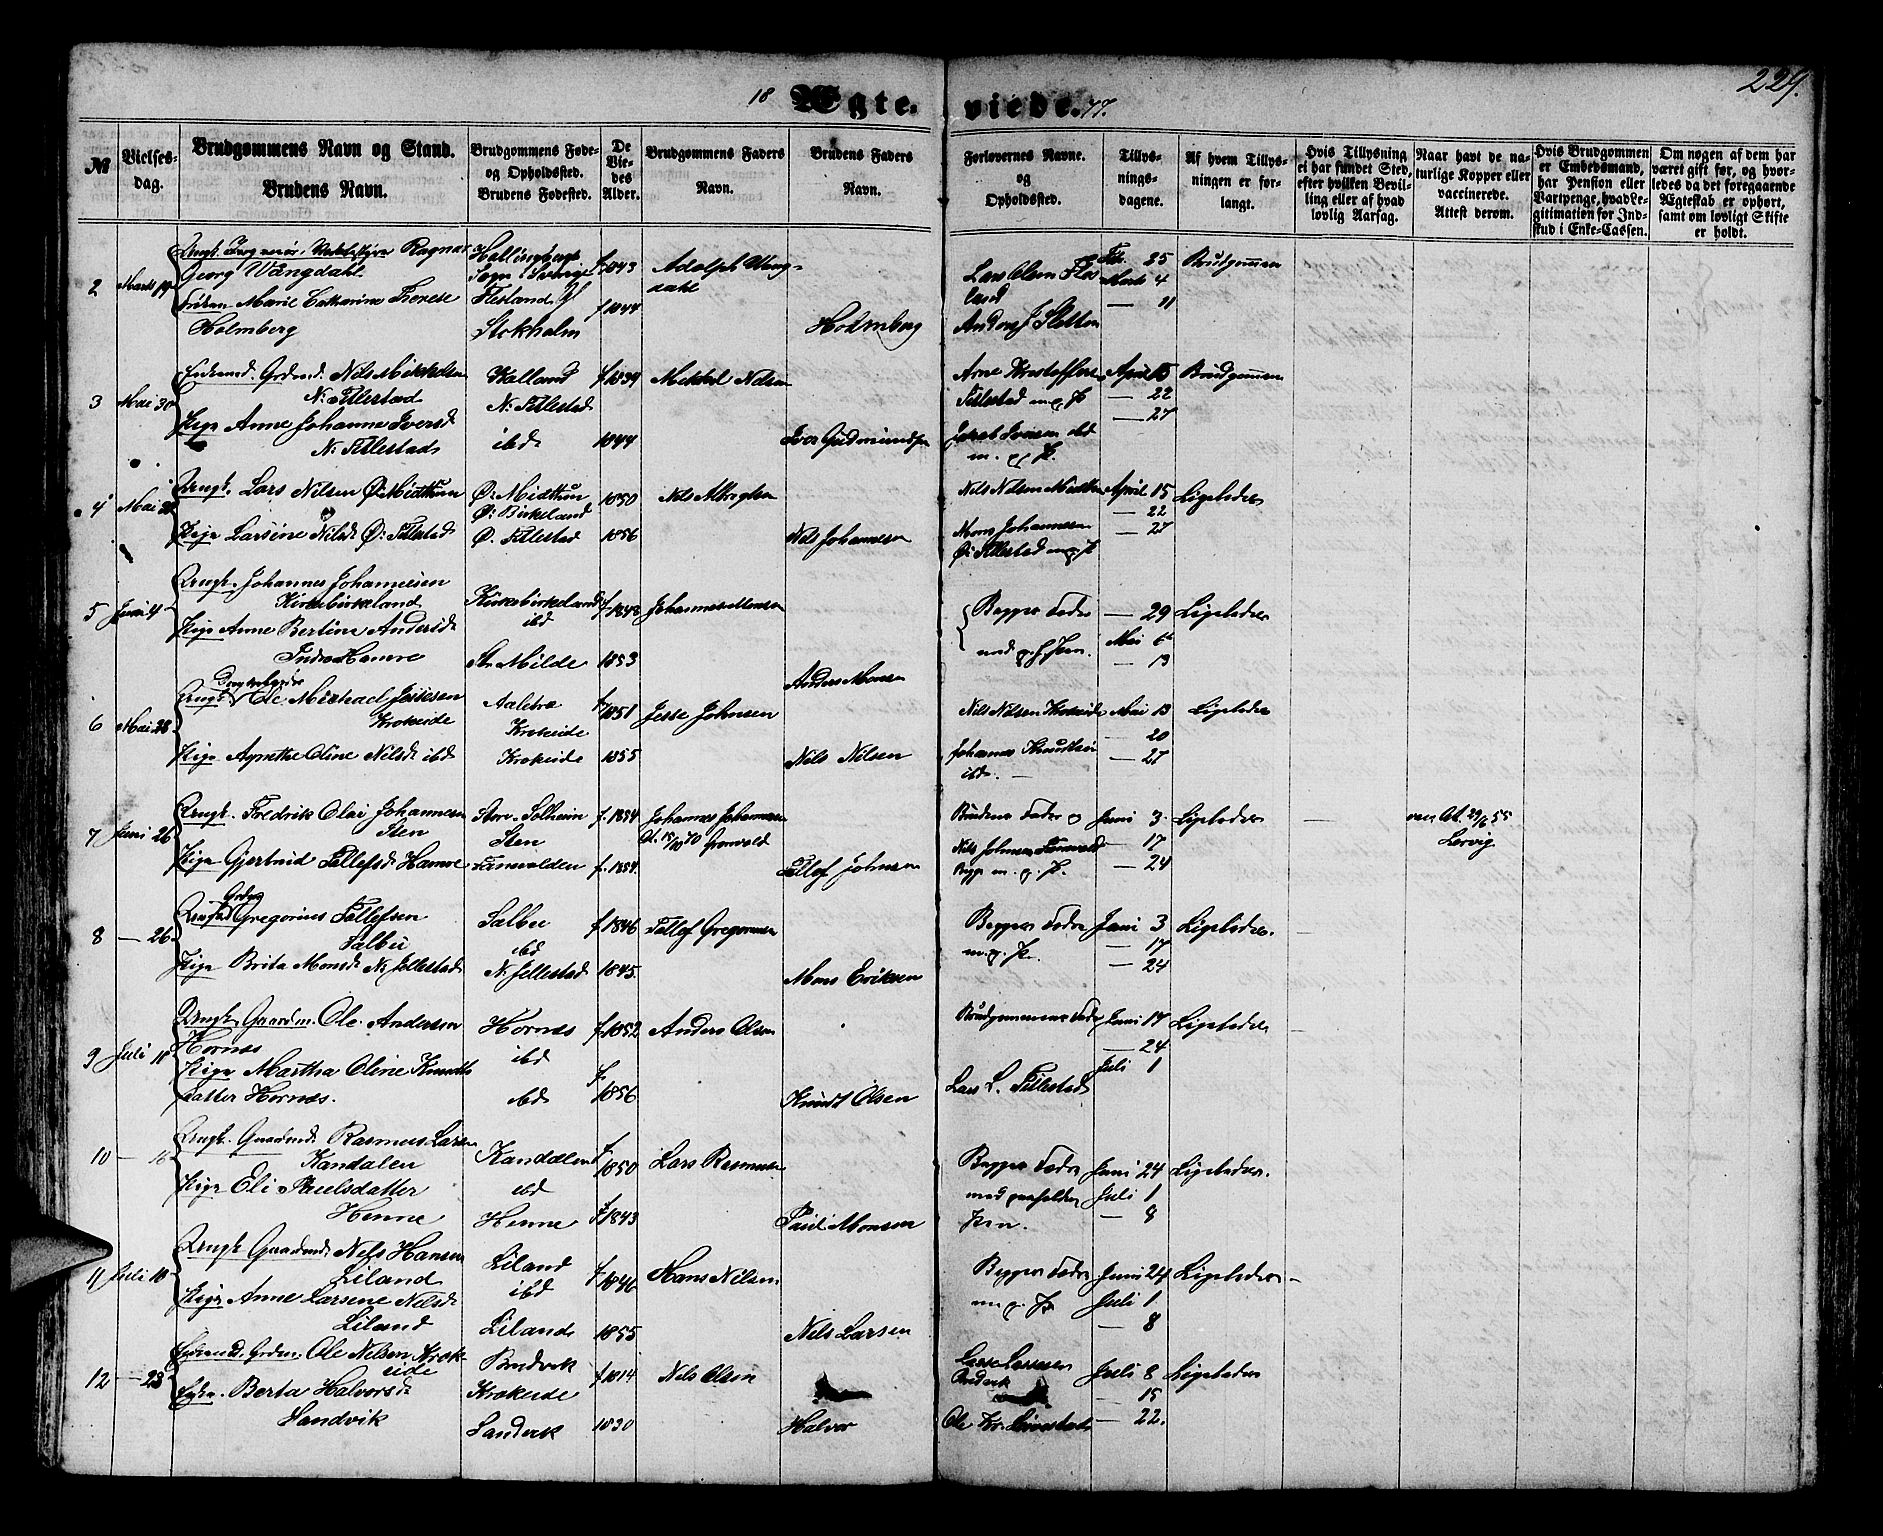 229.
18 Ægte-viede. 77.
№
Vielses-dag.
Brudgommens Navn og Stand.
Brudens Navn.
Brudgommens Føde- og Opholdssted.
Brudens Fødested.
De Viedes Alder.
Brudgommens Faders Navn.
Brudens Faders Navn.
Forlovernes Navne. og Opholdssted.
Tillysningsdagene.
Af hvem Tillysningen er forlangt.
Hvis Tillysning ei har fundet Sted, efter hvilken Bevilling eller af hvad lovlig Aarsag.
Naar havt de naturlige Kopper eller vaccinerede. Attest derom.
Hvis Brudgommen er Embedsmand, har Pension eller Vartpenge, hvad Legitimation for Indskud i Enke-Cassen.
Om nogen af dem har været gift før, og hvorledes da det foregaaende Ægteskab er ophørt, samt om lovligt Skifte er holdt.
2 Marts 19
Ungk. Ragnar
Georg Wangdahl
Frøken Marie Catharina Therese
Holmberg
Sogn i Sverige
Flesland
Stokholm
f. 1843
f 1844
Adolph Wangdahl
Holmberg
Lars Olsen Flesland
Feb. 25
Marts 4
— 11
Brudgommen
3 Mai 30
Enkemd. Grdmd. Nils Mikkelsen
N: Tillestad
Pige Anne Johanne Iversd
N. Tillestad
Kalland
N: Tillestad
ibd
f. 1834
1844
Mikkel Nilsen
Iver Gudmundsen
Arne Kristoffersen
Tillestad m. p. P.
Jakob Iversen ibd
m. p. P.
April 15
— 22
— 27
Brudgommen
4 Mai 28
Ungk. Lars Nilsen Ø: Midthun
Pige Larsine Nilsd Ø: Tillestad
Ø: Midthun
Ø: Birkeland
Ø. Tillestad
1850
1856
Nils Johannesen
Nils Nilsen Midthun
Mons Johannesen
Ø: Tillestad m. p. P.
April 15
— 22
— 27
Ligeledes
5 Juni 4
Ungk. Johannes Johannesen
Kirkebirkeland
Pige Anne Bertine Andersd
Indre Hamre
Kirkebirkeland
ibd
St. Milde
f. 1848
1853
Anders Monsen
Begges Fædre
— 29
Mai 6
— 13
Ligeledes
6 Mai 28
Ungk. Ole Michael Jessesen
Krokeide
Pige Agnethe Oline Nilsd ibd
Krokeide
Krokeide
1851
1855
Jesse Johnsen
Nils Nilsen
Nils Nilsen Krokeide
Johannes Knudsen
ibd. —
Mai 13
— 20
— 27
Ligeledes
7 Juni 26
Ungk. Fredrik Olai Johannesen
Sten
Pige Gjertrud Tellefsd Hamre
Store Solheim
Sten
f. 1854
f. 1854.
Johannes Johannesen
Tellef Johnsen
Brudens Fader og
Nils Johnsen
Begge m. p. P.
Juni 3
— 17
— 24
Ligeledes
—
vac At. 29/6 55
Lervig
8 — 26
Gregorius Tellefsen
Sælbu
Pige Brita Monsd N. Tellestad
Sælbu
ibd
N. Tellestad
f 1846
1845.
Tellef Gregorsen
Mons Eriksen
Begges Fædre
m. p. P.
Juni 3
— 17
— 24
Ligeledes.
—
9 Juli 11
Ungk. Gaardm. Ole Andersen
Hornæs
Pige Martha Oline Knuds
datter Hornæs.
Hornæs
ibd
ibd
f. 1852
f. 1856
Anders Olsen
Knudt Olsen
Brudgommens Fader
Lars L. Tillestad
Juni 17
— 24
Juli 1
Ligeledes
—
10 — 16
Ungk. Gaardmd. Rasmus Larsen
Kandalen
Pige Eli Paulsdatter
Henne
Kandalen
ibd
Henne
f. 1850
f. 1843
Lars Rasmusen
Paul Monsen
Begges Fædre
med paaholden
Pen.
Juni 24
Juli 1
— 8
Ligeledes.
11 Juli 10
Ungk. Gaardmd. Nils Hansen
Liland
Pige Anne Larsene Nilsd
Liland
Liland
ibd
Liland
f. 1846
1855
Hans Nilsen
Nils Larsen
Begges Fædre
m. p. P.
Juni 24
Juli 1
— 8
Ligeledes —
12 — 23
Enkemd. Grdm. Ole Nilsen Krokeide
Enke. Berta Halvorsd
Sandvik
Bredvik
Krokeide
Sandvik
f. 1814
1830
Nils Olsen
Halvor
Lasse Lassesen
Bredvik
Juli 8
— 15
— 22.
Ligeledes